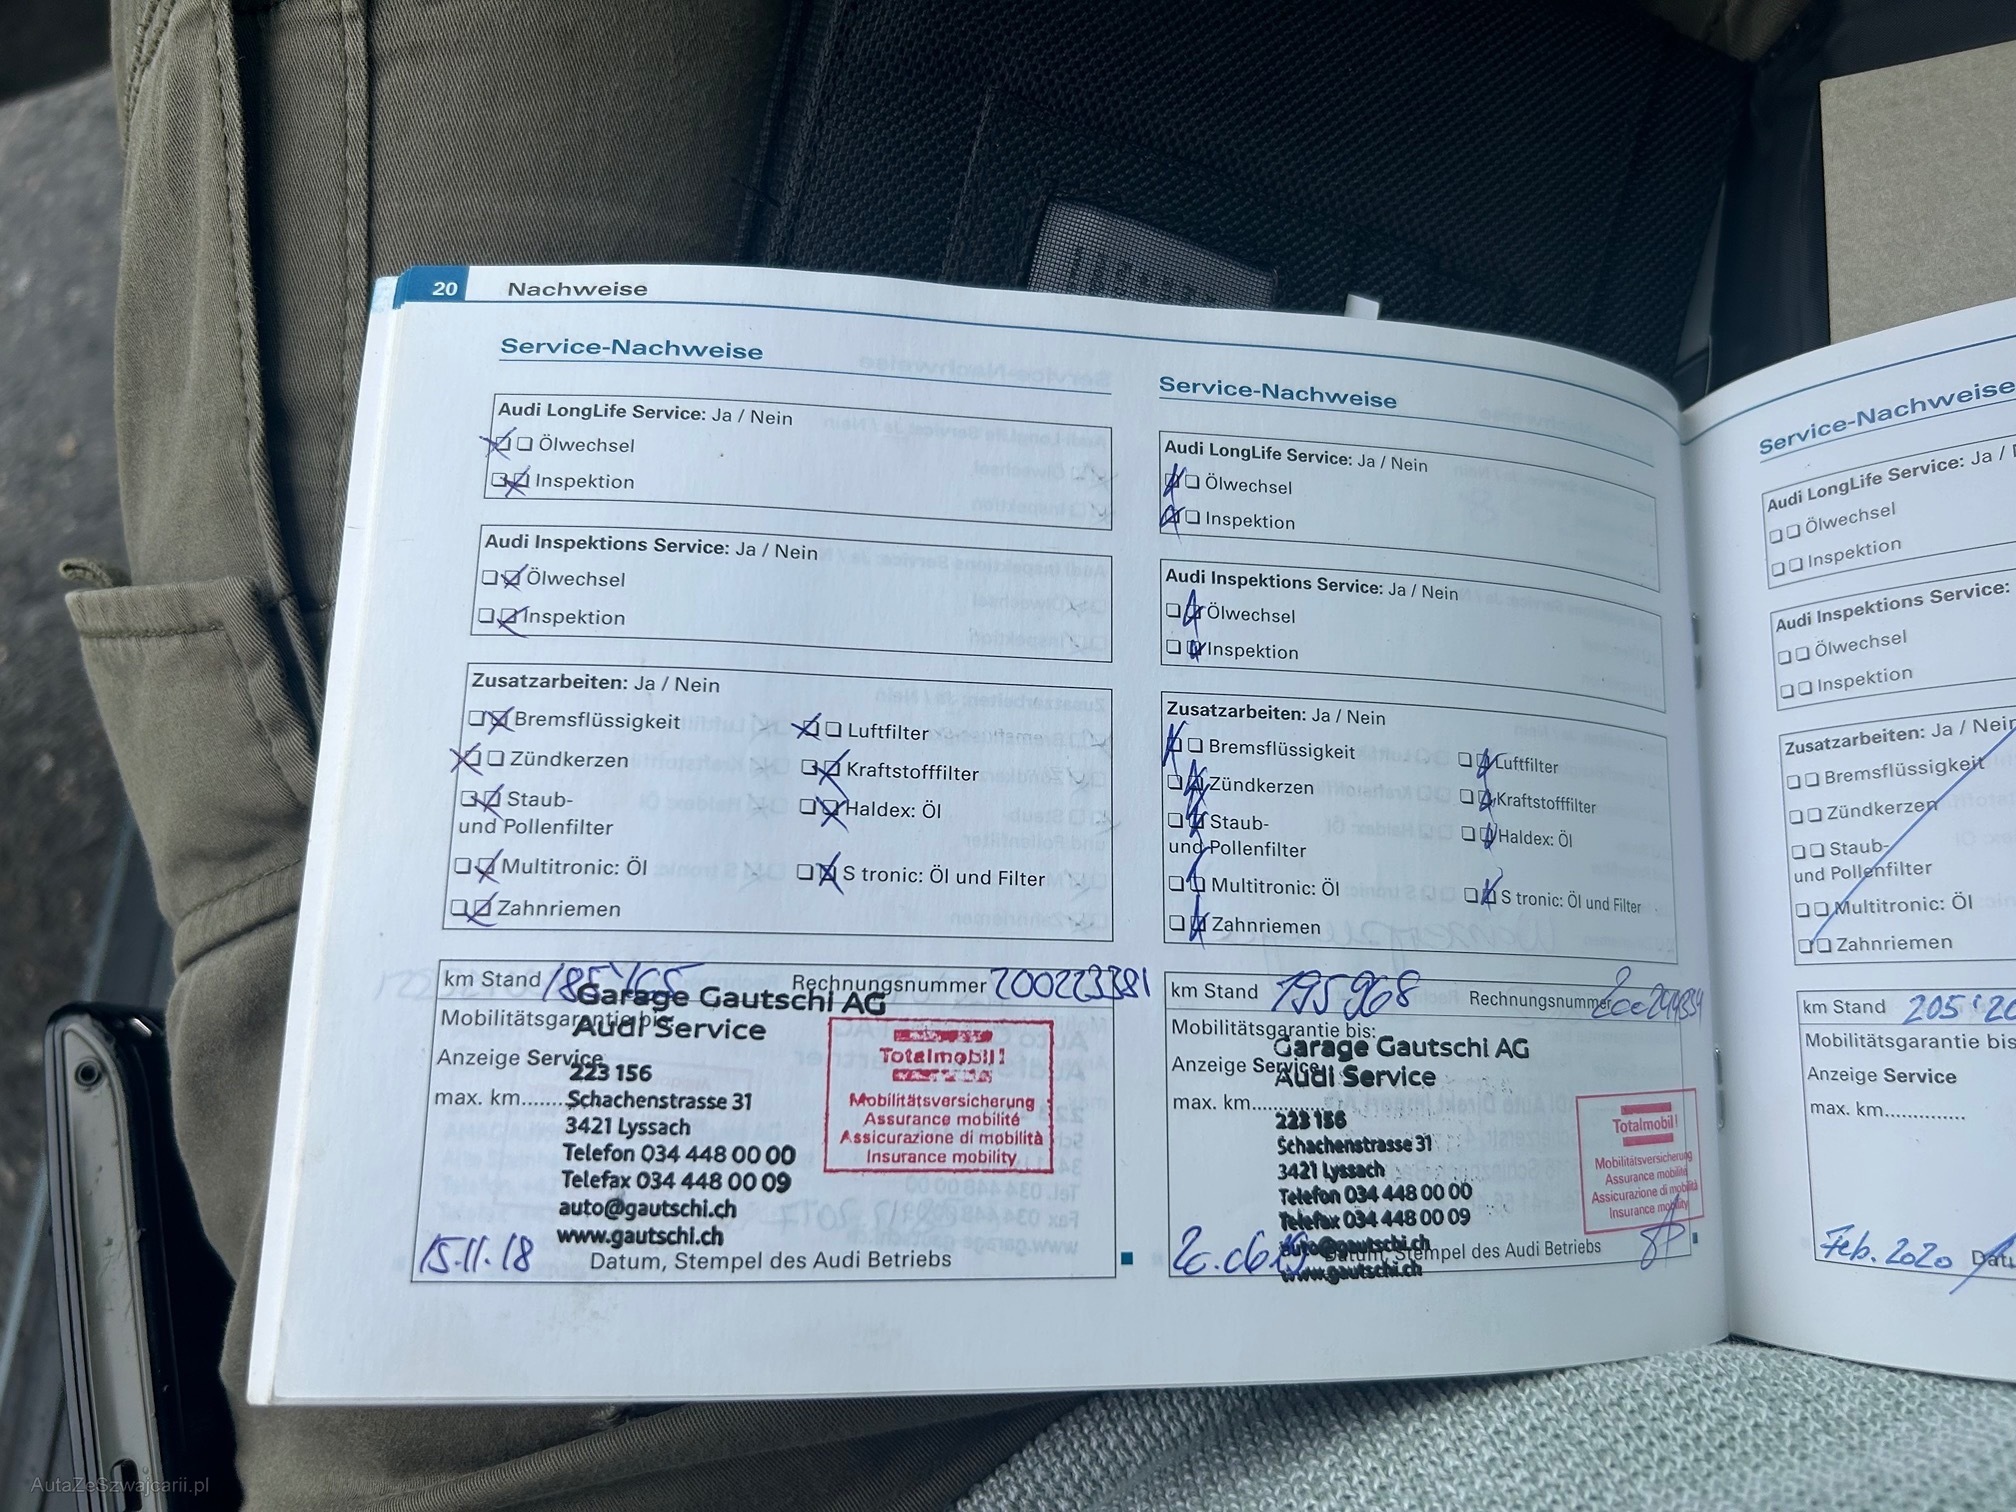 20 Nachweise
Service-Nachweise
Audi LongLife Service: Ja / Nein
Ölwechsel
Inspektion
Audi Inspektions Service: Ja / Nein
Ölwechsel
Inspektion
Zusatzarbeiten: Ja / Nein
Bremsflüssigkeit
Luftfilter
Zündkerzen
Kraftstofffilter
Staub-
und Pollenfilter
Haldex: Öl
Multitronic: Öl
S tronic: Öl und Filter
Zahnriemen
km Stand
Rechnungsnummer 200223381
Garage Gautschi AG
Mobilitätsgarantie bis:
Audi Service
Anzeige Service
223 156
max. km........
Schachenstrasse 31
3421 Lyssach
Telefon 034 448 00 00
Telefax 034 448 00 09
auto@gautschi.ch
www.gautschi.ch
Totalmobil!
Mobilitätsversicherung
Assurance mobilité
Assicurazione di mobilità
Insurance mobility
15.11.18
Datum, Stempel des Audi Betriebs
Service-Nachweise
Audi LongLife Service: Ja / Nein
Ölwechsel
Inspektion
Audi Inspektions Service: Ja / Nein
Ölwechsel
Inspektion
Zusatzarbeiten: Ja / Nein
Bremsflüssigkeit
Luftfilter
Zündkerzen
Kraftstofffilter
Staub-
und Pollenfilter
Haldex: Öl
Multitronic: Öl
S tronic: Öl und Filter
Zahnriemen
km Stand 195968
Rechnungsnummer
Mobilitätsgarantie bis:
Garage Gautschi AG
Anzeige Service
Audi Service
max. km............
223 156
Schachenstrasse 31
3421 Lyssach
Telefon 034 448 00 00
Telefax 034 448 00 09
auto@gautschi.ch
www.gautschi.ch
Totalmobil!
Mobilitätsversicherung
Assurance mobilité
Assicurazione di mobilità
Insurance mobility
Datum, Stempel des Audi Betriebs
Service-Nachweise
Audi LongLife Service: Ja /
Ölwechsel
Inspektion
Audi Inspektions Service:
Ölwechsel
Inspektion
Zusatzarbeiten: Ja / Nein
Bremsflüssigkeit
Zündkerzen
Staub-
und Pollenfilter
Multitronic: Öl
Zahnriemen
km Stand 205'20
Mobilitätsgarantie bis
Anzeige Service
max. km..............
Feb. 2020
AutaZeSzwajcarii.pl